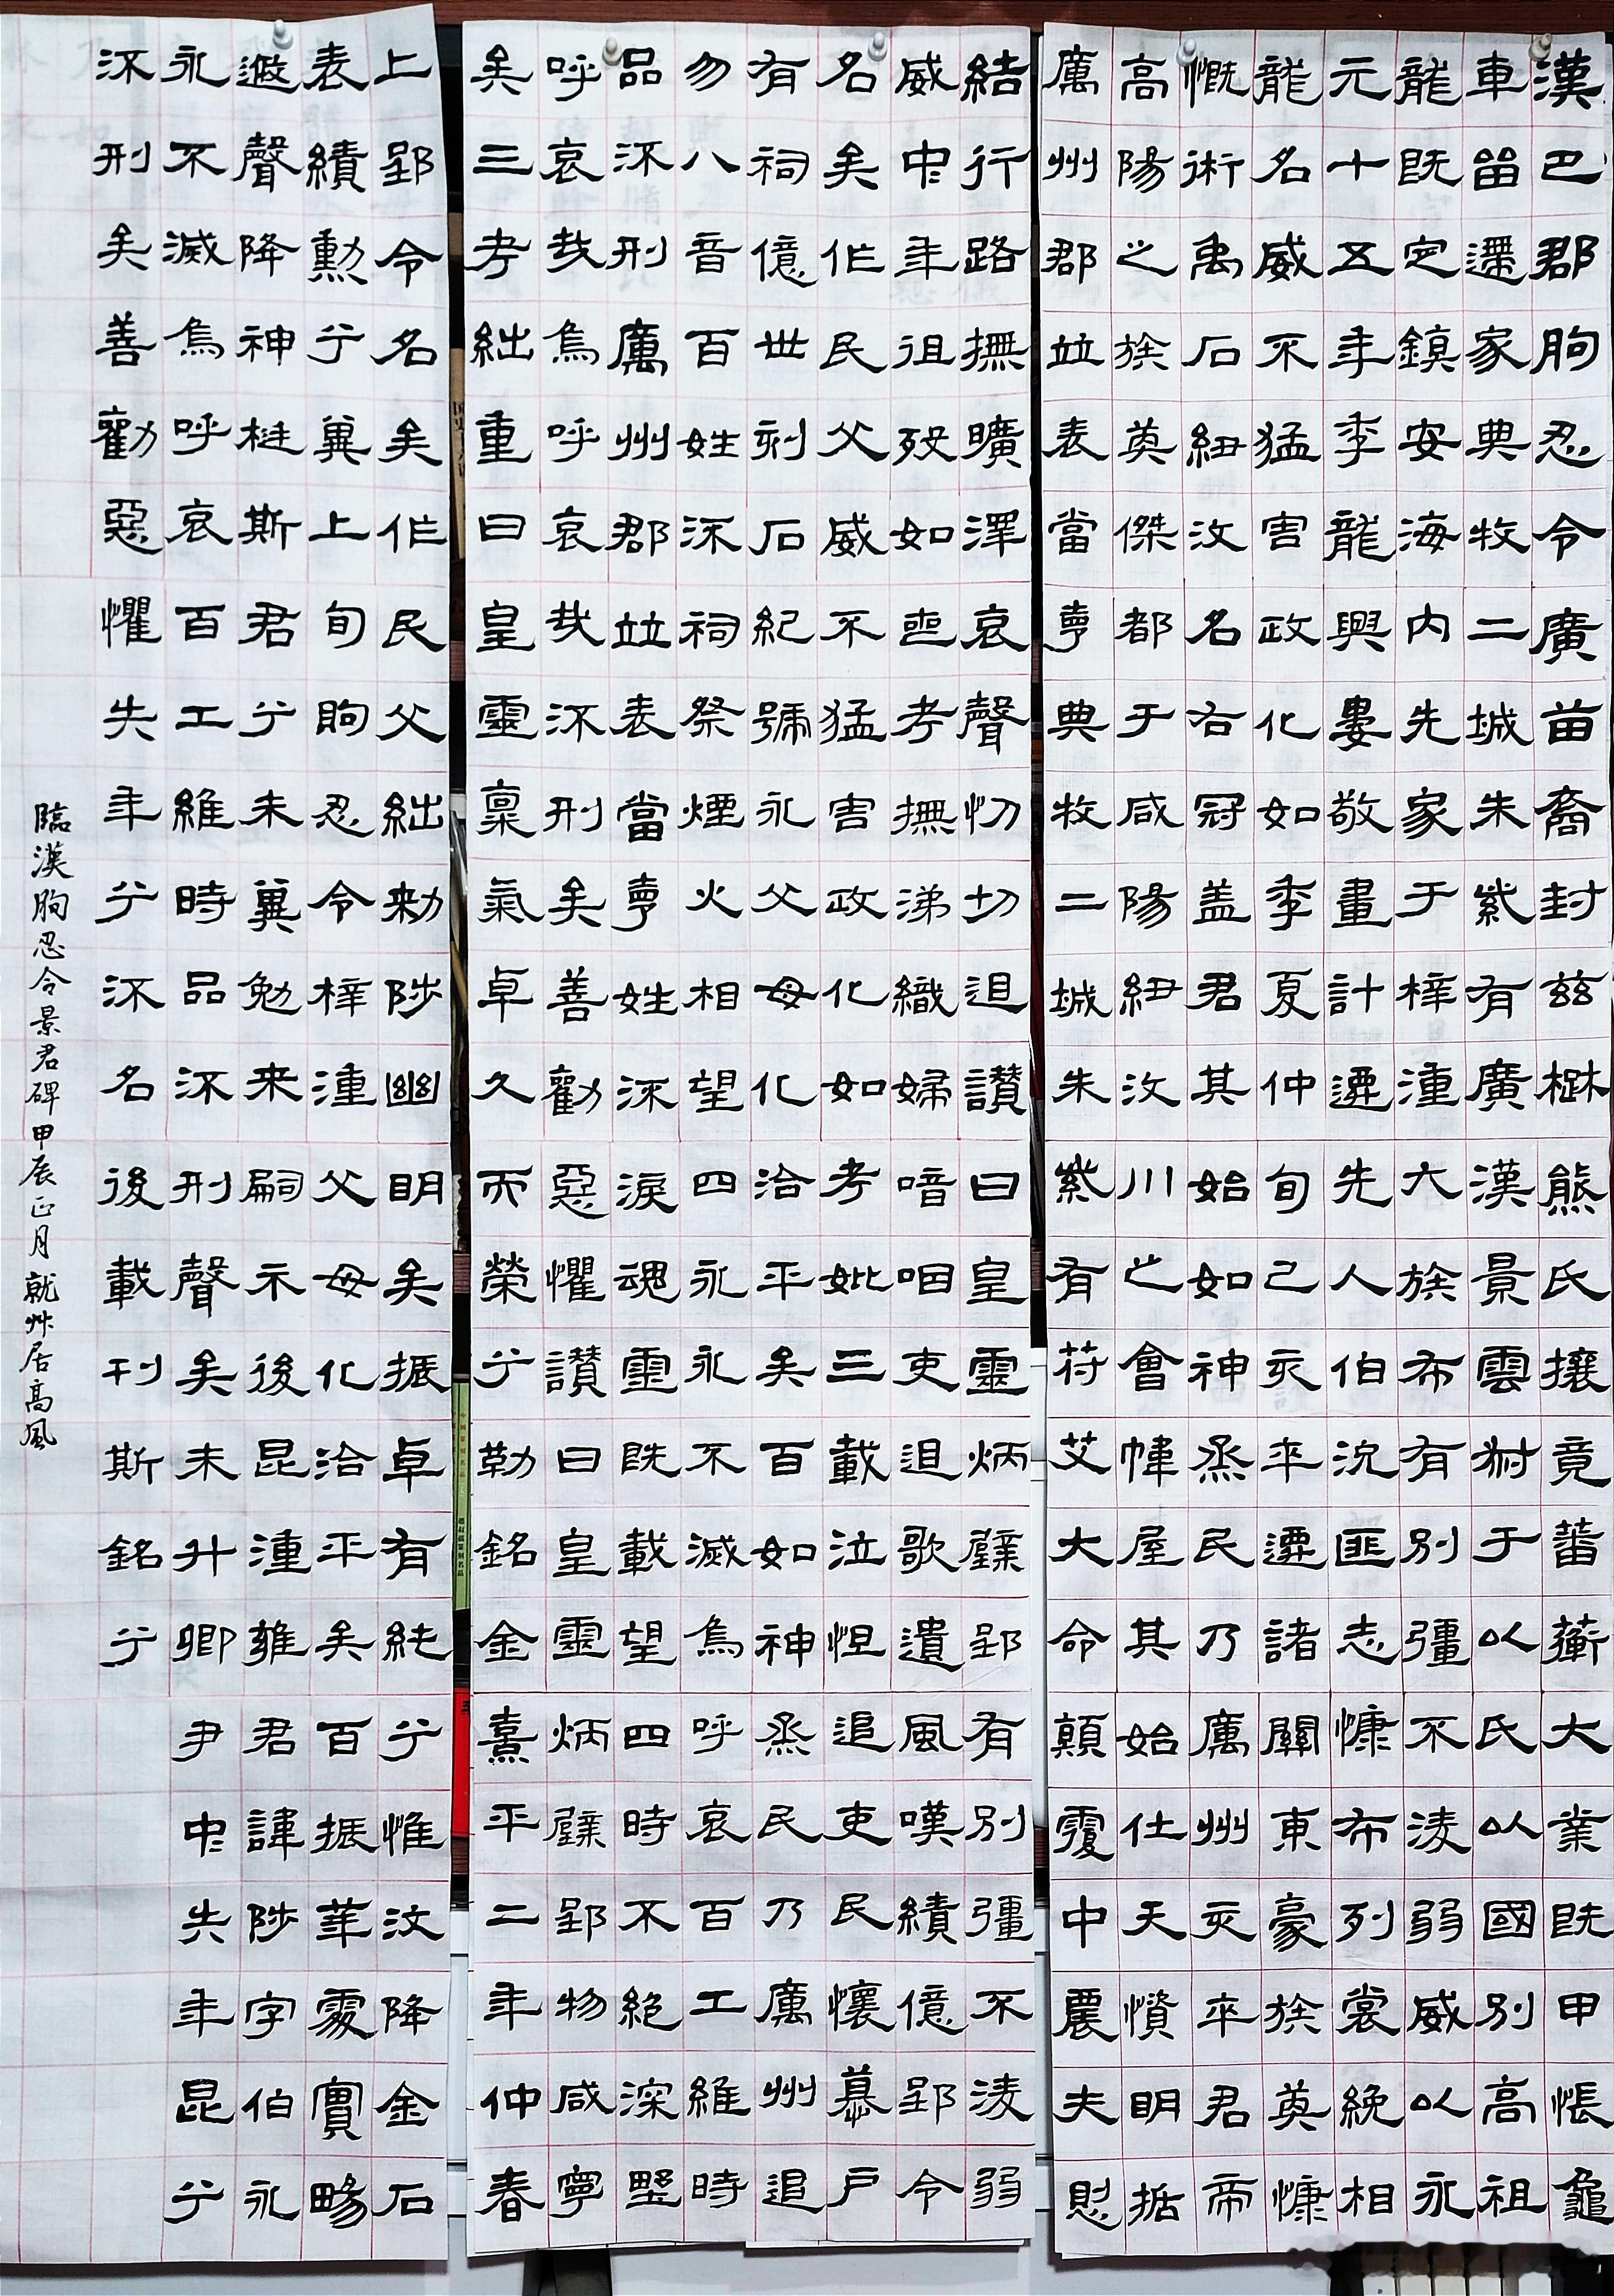 漢巴郡朐忍令廣苗裔封茲楙熊氏攘竟蕃衛大業既甲帳龜
車啚遷家典牧二城朱紫有廣漢景雲尌于以氏以國別高祖
龍既定鎮安海內先家于梓潼六族布有別彊不淩弱威以永
元十五年季龍興婁敬畫計遷先人伯沇匪志慷布列裳絻相
龍名威不猛害政化如季夏仲旬己亥卒遷諸關東豪族英慷
慨術禹石紐汶名右冠蓋君其始如神烝民乃厲州亥卒君帝
高陽之族英傑都于咸陽紐汶川之會幃屋其始仕天憤明括
厲州郡並表當享典牧二城朱紫有苻艾大命顛覆中農夫惻
結行路撫曠澤哀聲忉切追讚曰皇靈炳璧郢有別彊不淩弱
威中年徂歿如喪考撫涕織婦喑咽吏追歌遺風嘆績億郢令
名矣作民父威不猛害政化如考妣三載泣怛追吏民懷慕戶
有祠億世刻石紀號永父母化洽平矣百如神烝民乃厲州追
勿八音百姓流祠祭煙火相望四永永不滅烏呼哀百工維時
品流刑厲州郡並表當享姓流淚魂靈既載望四時不絕深野
呼哀哉烏呼哀哉流刑矣善勸惡懼讚曰皇靈炳璧郢物咸寧
矣三考絀重曰皇靈稟氣卓久而榮兮勒銘金熹平二年仲春
上郢令名矣作民父絀勑陟幽明矣振卓有純兮惟汶降金石
表績勳兮冀上旬朐忍令梓潼父母化洽平矣百振華處實暘
遐聲降神梴斯君兮未冀勉來嗣示後昆潼雍君諱陟字伯永
永不滅烏呼哀百工維時品流刑聲矣未升卿尹中失年昆兮
流刑矣善勸惡懼失年兮流名後載刊斯銘兮
臨漢朐忍令景君碑甲辰正月就艸居高風